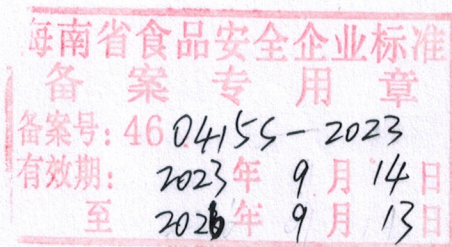 海南省食品安全企业标准
备案专用章
备案号:46 0415S-2023
有效期: 2023年9月14日
至 2026年9月13日